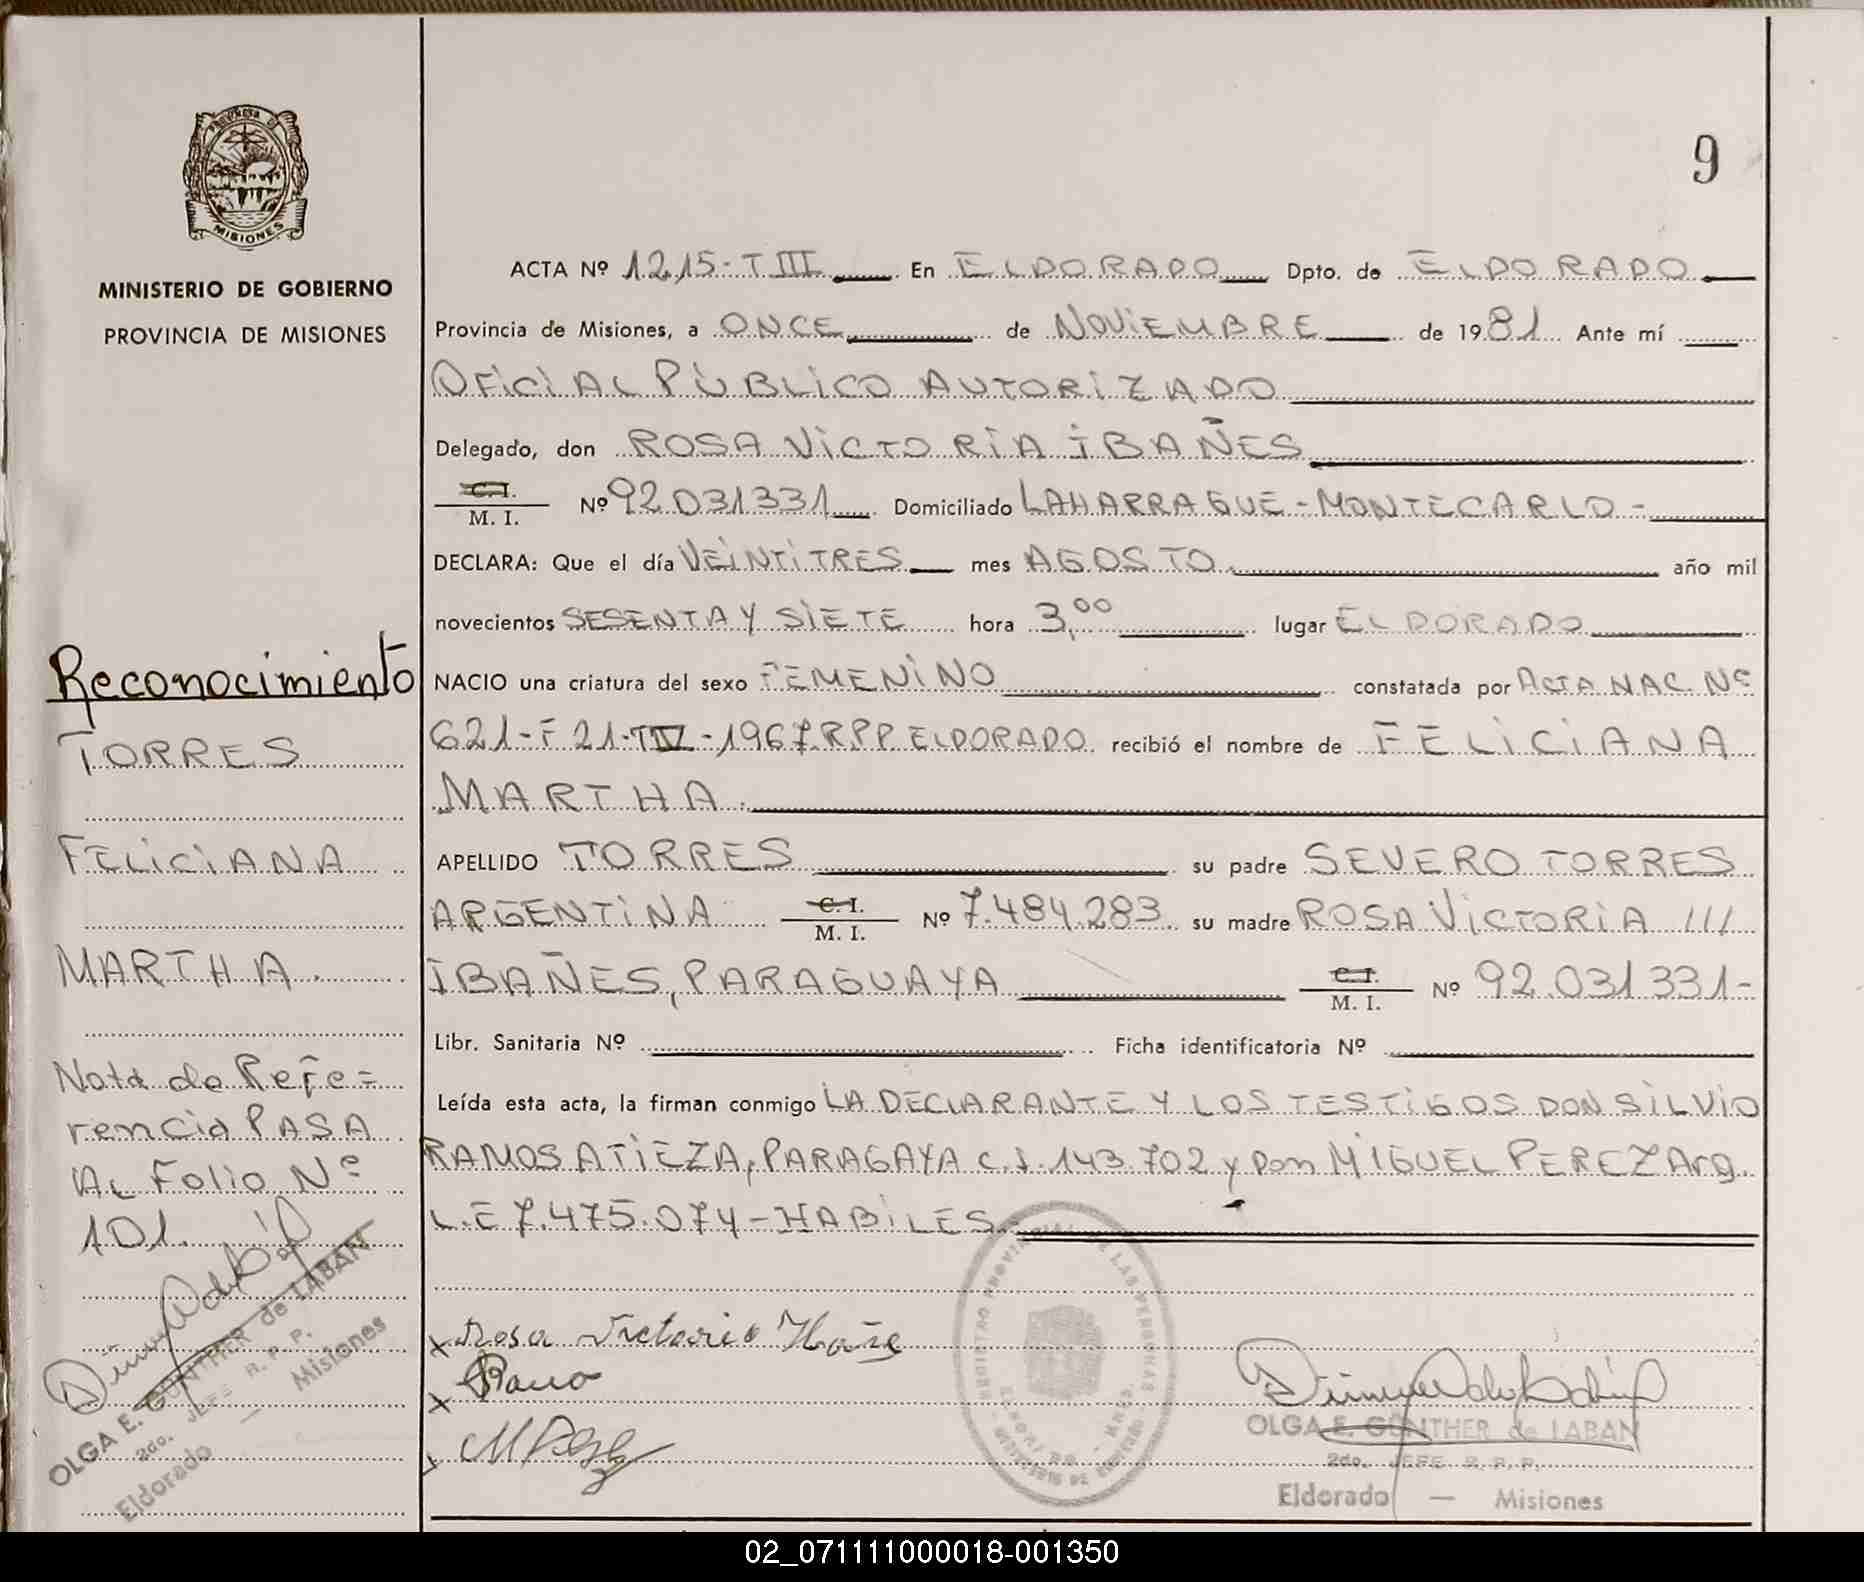 9
PROVINCIA DE
MISIONES
MINISTERIO DE GOBIERNO
PROVINCIA DE MISIONES
Reconocimiento
TORRES
FELICIANA
MARTHA.
Nota de Refe=
rencia PASA
AL Folio Nº
101.
OLGA E. GÜNTHER de LABAN
2do. JEFE R. P. P.
Eldorado — Misiones
ACTA Nº 1215-T III En ELDORADO Dpto. de ELDORADO
Provincia de Misiones, a ONCE de NOVIEMBRE de 1981 Ante mí
OFICIAL PÚBLICO AUTORIZADO
Delegado, don ROSA VICTORIA IBAÑES
C. I.
M. I. Nº 92.031331 Domiciliado LAHARRAGUE-MONTECARLO-
DECLARA: Que el día VEINTITRES mes AGOSTO año mil
novecientos SESENTA Y SIETE hora 3,00 lugar ELDORADO
NACIO una criatura del sexo FEMENINO constatada por ACTA NAC. Nº
621-F 21-T IV-1967 RPP ELDORADO recibió el nombre de FELICIANA
MARTHA.
APELLIDO TORRES su padre SEVERO TORRES
ARGENTINA C. I. M. I. Nº 7.484.283 su madre ROSA VICTORIA ///
IBAÑES, PARAGUAYA C. I. M. I. Nº 92.031331-
Libr. Sanitaria Nº Ficha identificatoria Nº
Leída esta acta, la firman conmigo LA DECLARANTE Y LOS TESTIGOS DON SILVIO
RAMOS ATIEZA, PARAGAYA C.I. 143.702 y Don MIGUEL PEREZ Arg.
L.E 7.475.074-HABILES.
x Rosa Victoria Ibañe
x
x M Perez
REGISTRO PROVINCIAL DE LAS PERSONAS
OLGA E. GÜNTHER de LABAN
2do. JEFE R. P. P.
Eldorado — Misiones
02_071111000018-001350